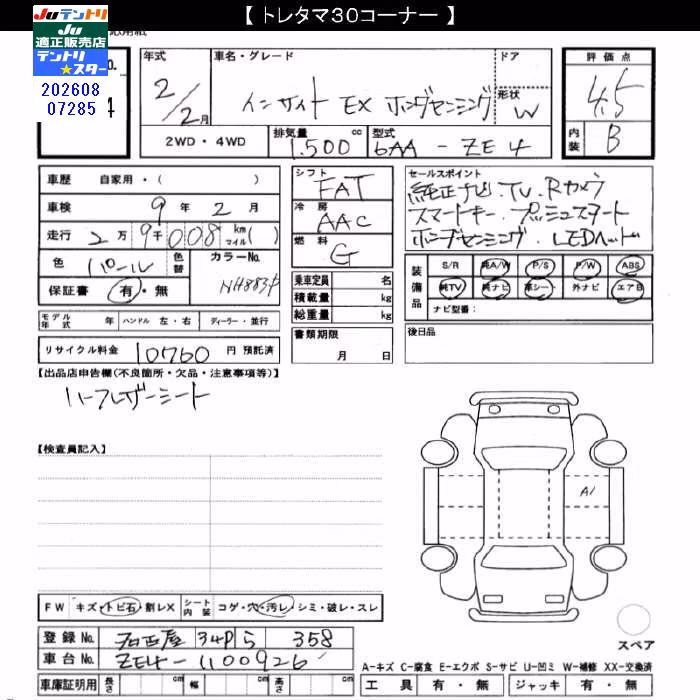 【 トレタマ30コーナー 】
Juテントリ
JU
適正販売店
テントリ
★スター
202608
07285
年式
2/2月
車名・グレード
インサイト EX ホンダセンシング
ドア
形状
W
評価点
4.5
内装
B
2WD・4WD
排気量
1.500 cc
型式
6AA-ZE4
車歴 自家用・( )
車検 9年 2月
走行 2万 9千 008 km マイル( )
色 パール
色替
カラーNo.
NH883P
保証書 有・無
シフト
FAT
冷房
AAC
燃料
G
乗車定員 名
積載量 kg
総重量 kg
書類期限
月 日
セールスポイント
純正ナビ.TV.Rカメラ
スマートキー.プッシュスタート
ホンダセンシング.LEDヘッド
装備品
S/R 純A/W P/S P/W ABS
純TV 純ナビ 革シート 外ナビ エアB
ナビ型番:
後日品
モデル年式 年 ハンドル 左・右 ディーラー・並行
リサイクル料金 10760 円 預託済
【出品店申告欄(不良箇所・欠品・注意事項等)】
ハーフレザーシート
【検査員記入】
A1
FW キズ・トビ石・割レX シート内装 コゲ・穴・汚レ・シミ・破レ・スレ
登録No. 名古屋 34P ら 358
車台No. ZE4-1100926
車庫証明用 長さ cm 幅 cm 高さ cm
スペア
A-キズ C-腐食 E-エクボ S-サビ U-凹ミ W-補修 XX-交換済
工具 有・無 ジャッキ 有・無